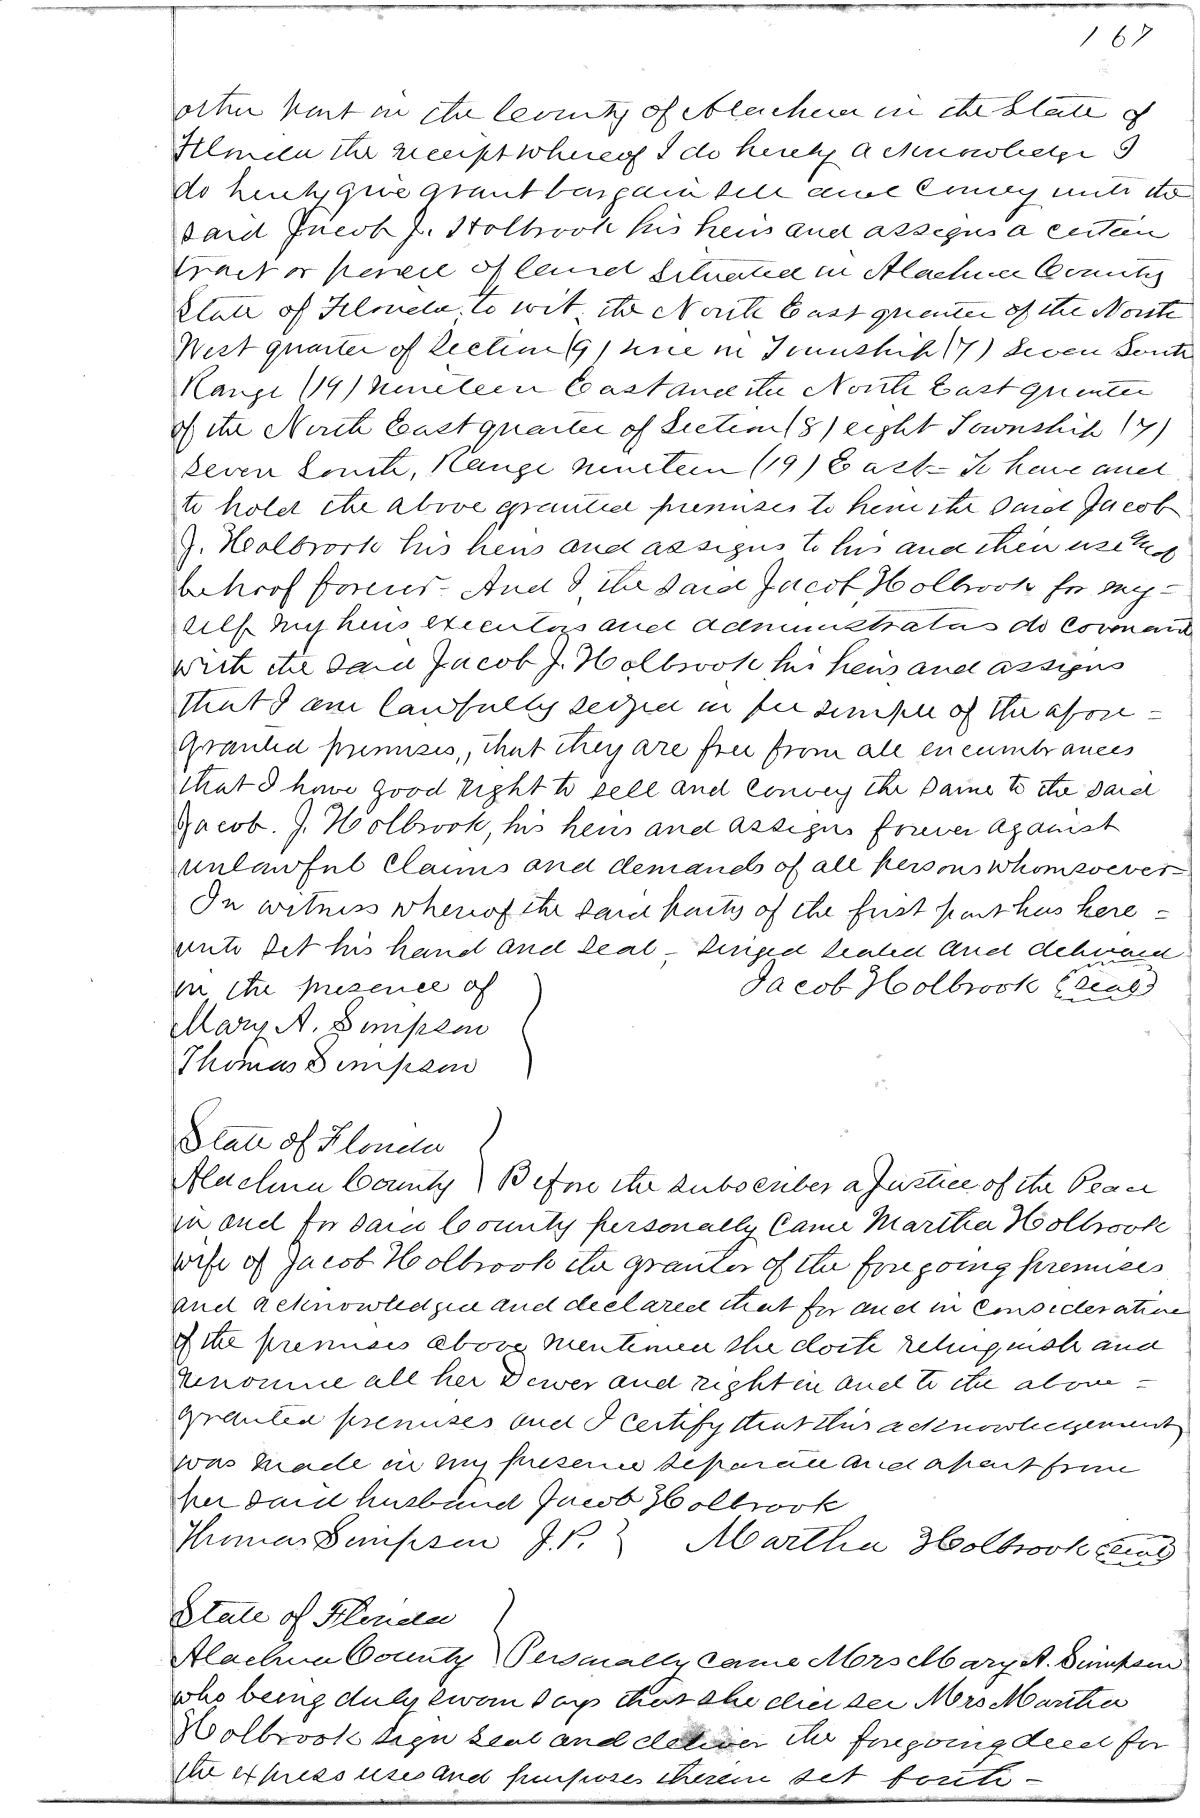 167
other part in the County of Alachua in the State of
Florida the receipt whereof I do hereby acknowledge I
do hereby give grant bargain sell and convey unto the
said Jacob J. Holbrook his heirs and assigns a certain
tract or parcel of land situated in Alachua County
State of Florida, to wit, the North East quarter of the North
West quarter of Section (9) nine in Township (7) Seven South
Range (19) nineteen East and the North East quarter
of the North East quarter of Section (8) eight Township (7)
Seven South, Range nineteen (19) East = To have and
to hold the above granted premises to him the said Jacob
J. Holbrook his heirs and assigns to his and their use and
behoof forever - And I, the said Jacob Holbrook for my =
self my heirs executors and administrators do covenant
with the said Jacob J. Holbrook his heirs and assigns
that I am lawfully seized in fee simple of the afore =
granted premises, that they are free from all encumbrances
that I have good right to sell and convey the same to the said
Jacob. J. Holbrook, his heirs and assigns forever against
unlawful claims and demands of all persons whomsoever =
In witness whereof the said party of the first part has here =
unto set his hand and seal - Singed sealed and delivered
in the presence of } Jacob Holbrook (seal)
Mary A. Simpson
Thomas Simpson
State of Florida }
Alachua County } Before the subscriber a Justice of the Peace
in and for said County personally came Martha Holbrook
wife of Jacob Holbrook the grantor of the foregoing premises
and acknowledged and declared that for and in consideration
of the premises above mentioned she doth relinquish and
renounce all her Dower and right in and to the above =
granted premises and I certify that this acknowledgement
was made in my presence separate and apart from
her said husband Jacob Holbrook
Thomas Simpson J.P. } Martha Holbrook (seal)
State of Florida }
Alachua County } Personally came Mrs Mary A. Simpson
who being duly sworn says that she did see Mrs Martha
Holbrook sign seal and deliver the foregoing deed for
the express uses and purposes therein set forth -